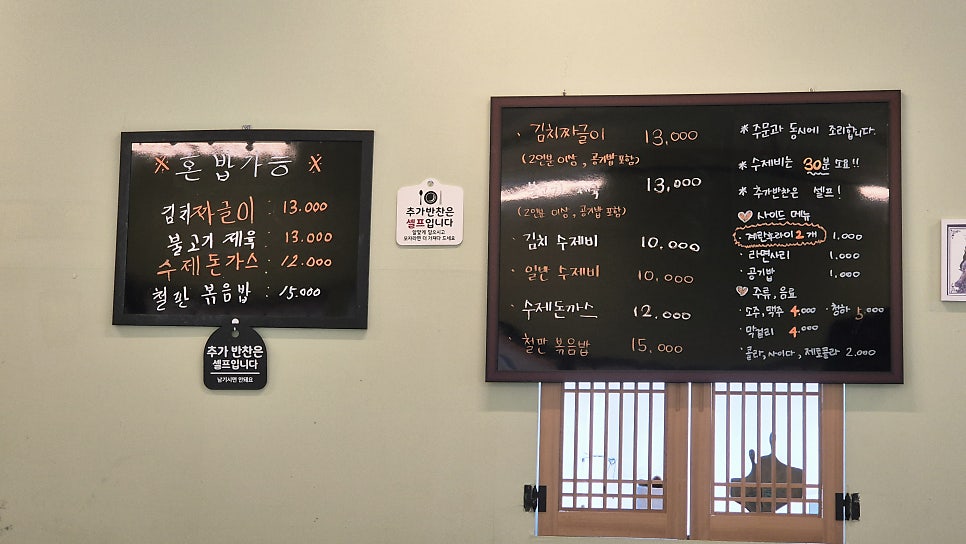 ※ 혼밥가능 ※
김치짜글이 : 13.000
불고기 제육 : 13.000
수제돈가스 : 12.000
철판 볶음밥 : 15.000
추가 반찬은
셀프입니다
남기시면 안돼요
추가반찬은
셀프입니다
알맞게 담으시고
모자라면 더 가져다 드세요
· 김치짜글이 13,000
(2인분 이상, 공기밥 포함)
제육 13,000
(2인분 이상, 공기밥 포함)
· 김치 수제비 10,000
· 일반 수제비 10,000
· 수제돈까스 12,000
· 철판 볶음밥 15,000
※ 주문과 동시에 조리합니다.
※ 수제비는 30분 소요!!
※ 추가반찬은 셀프!
사이드 메뉴
· 계란후라이 2개 1,000
· 라면사리 1,000
· 공기밥 1,000
주류, 음료
· 소주, 맥주 4,000 · 청하 5,000
· 막걸리 4,000
· 콜라, 사이다, 제로콜라 2,000